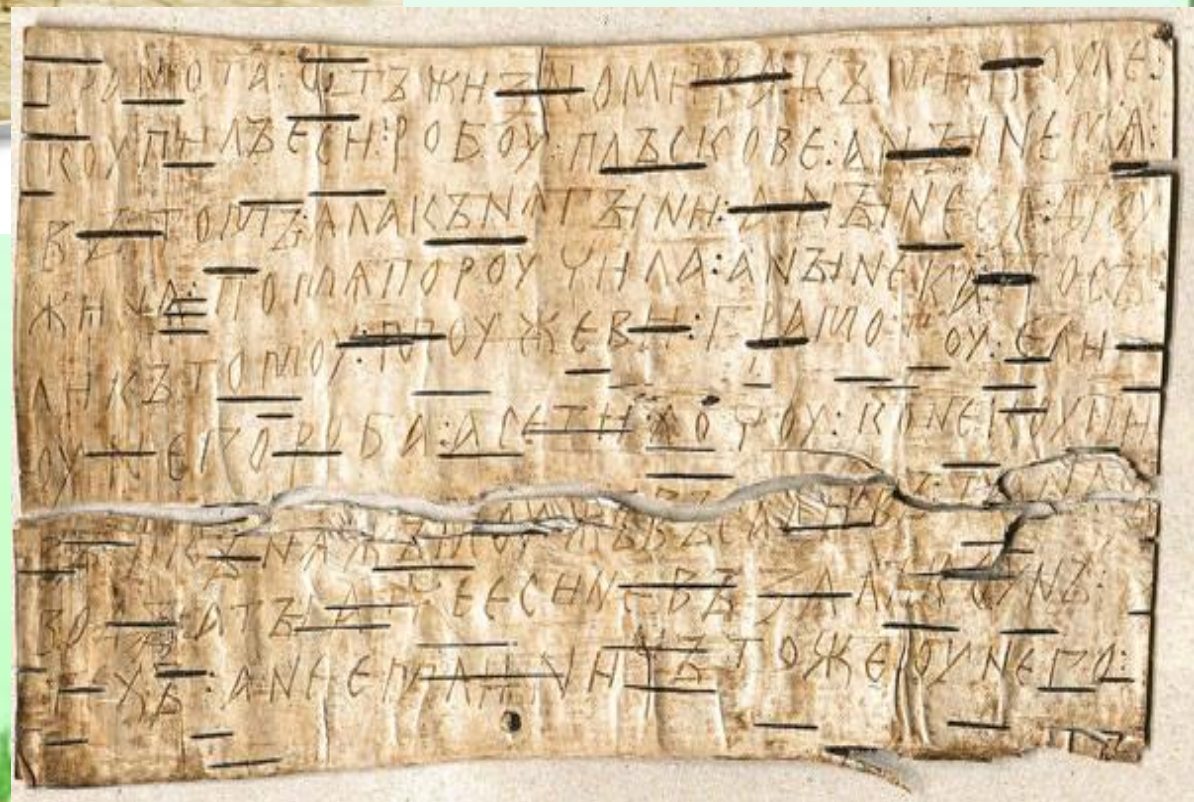 ГРАМОТА : ѠТЪ ЖИЗНОМИРА : КЪ МИКОУЛЕ :
КОУПИЛЪ ЕСИ : РОБОУ : ПЛЪСКОВЕ : А НЪІНЕ МѦ :
ВЪ ТОМЪ : ѦЛА КЪНѦГЪІНИ : А НЪІНЕ СѦ : ДРОУ
ЖИНА : ПО МѦ ПОРОУЧИЛА : А НЪІНЕ КА : ПОСЪ
ЛИ КЪ ТОМОУ : МОУЖЕВИ : ГРАМОТОУ : ЕЛИ
ОУ НЕГО РОБА : А СЕ ТИ ХОЧОУ : КОНЕ КОУПИ
ВЪ : И КЪНѦЖЪ МОУЖЪ ВЪСАДИВЪ : ТА НА СЪ
ВОДЪІ : А ТЪІ АТЧЕ ЕСИ НЕ ВЪЗАЛЪ КОУНЪ :
ТЕХЪ : А НЕ ЕМЛИ : НИЧЪТО ЖЕ ОУ НЕГО :